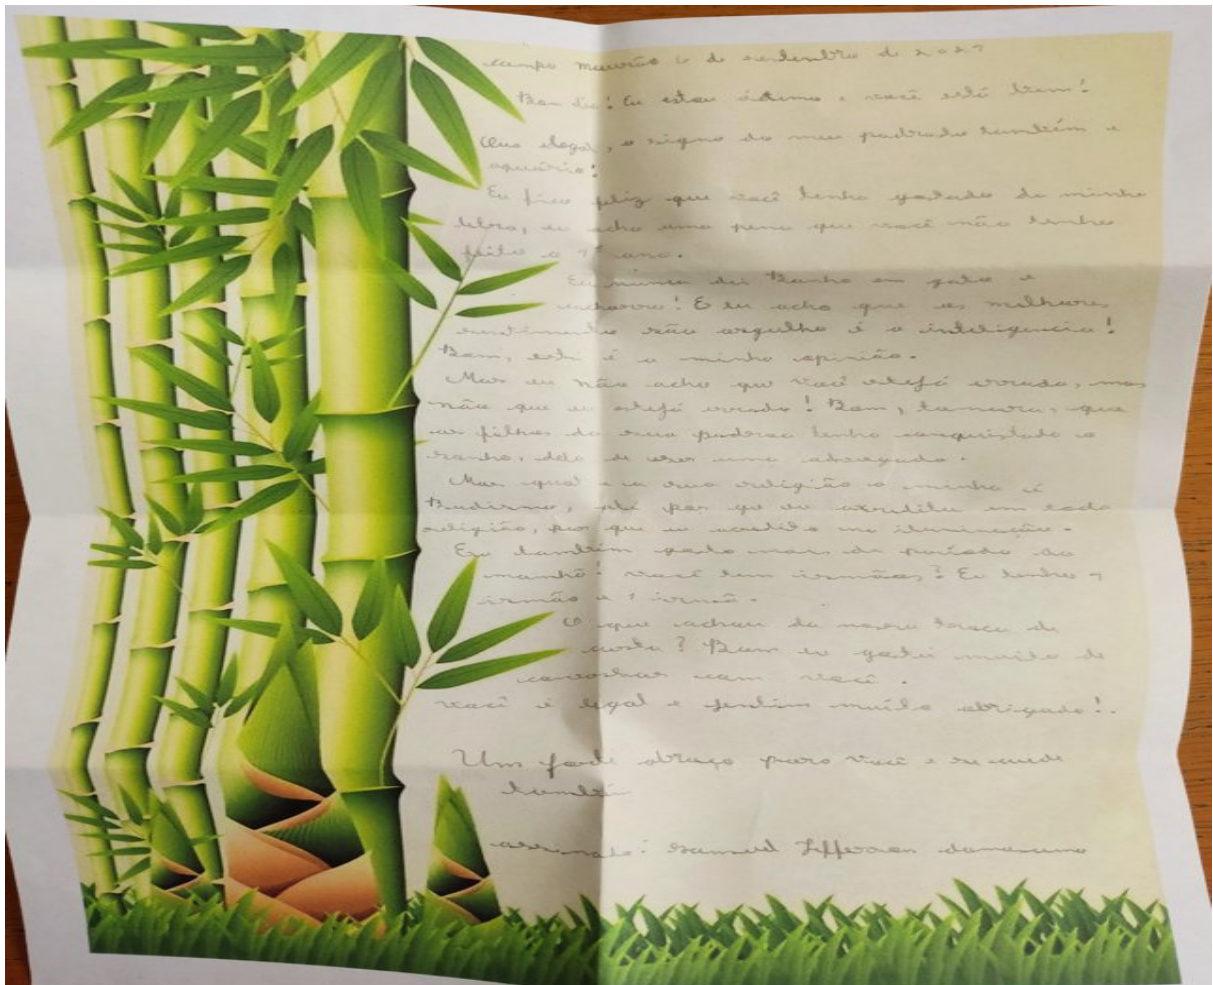 campo mourão 6 de setembro de 2021
Bom dia! Eu estou ótimo e você está bem!
Que legal, o signo do meu padrasto também e
aquário!
Eu fico feliz que você tenha gostado da minha
letra, eu acho uma pena que você não tenha
feito o 1º ano.
Eu nunca dei Banho em gato e
cachorro! E eu acho que os milhores
sentimento são orgulho é a inteligencia!
Bom, esta é a minha opinião.
Mas eu não acho que você esteja errada, mas
não que eu esteja errado! Bom, que
as filhas da sua tenha conquistado o
sonho, dela de ser uma advogada.
Mas qual e a sua religião a minha é
Budismo, até por que eu acredito em toda
religião, por que eu acredito na iluminação.
Eu também gosto mais do periodo da
manhã! você tem irmãos? Eu tenho
irmão e 1 irmã.
O que achou da nossa troca de
carta? Bom eu gostei muito de
com você.
você é legal e gentil muito obrigado!.
Um forte abraço para você e se cuide
também
assinado: Samuel Jefferson